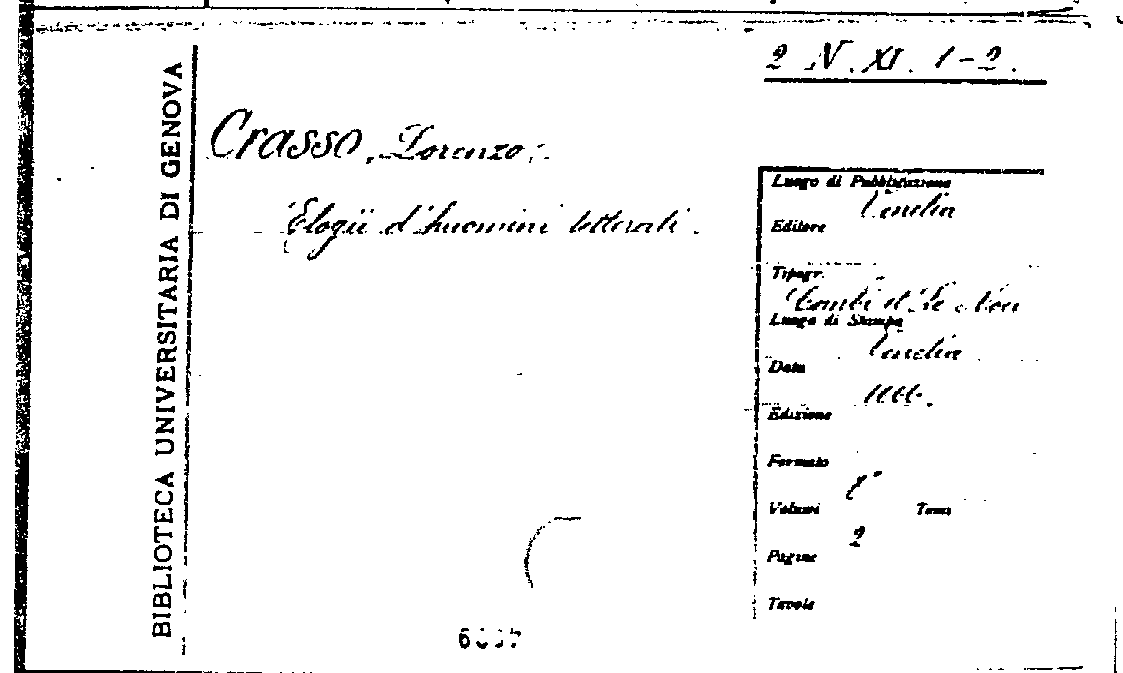 2 N. XI. 1-2.
BIBLIOTECA UNIVERSITARIA DI GENOVA
Crasso, Lorenzo.
Elogii d'huomini letterati.
Luogo di Pubblicazione
Venetia
Editore
Tipogr.
Combi et La Nou
Luogo di Stampa
Venetia
Data
Edizione
Formato
Volumi Tomi
2
Pagine
Tavole